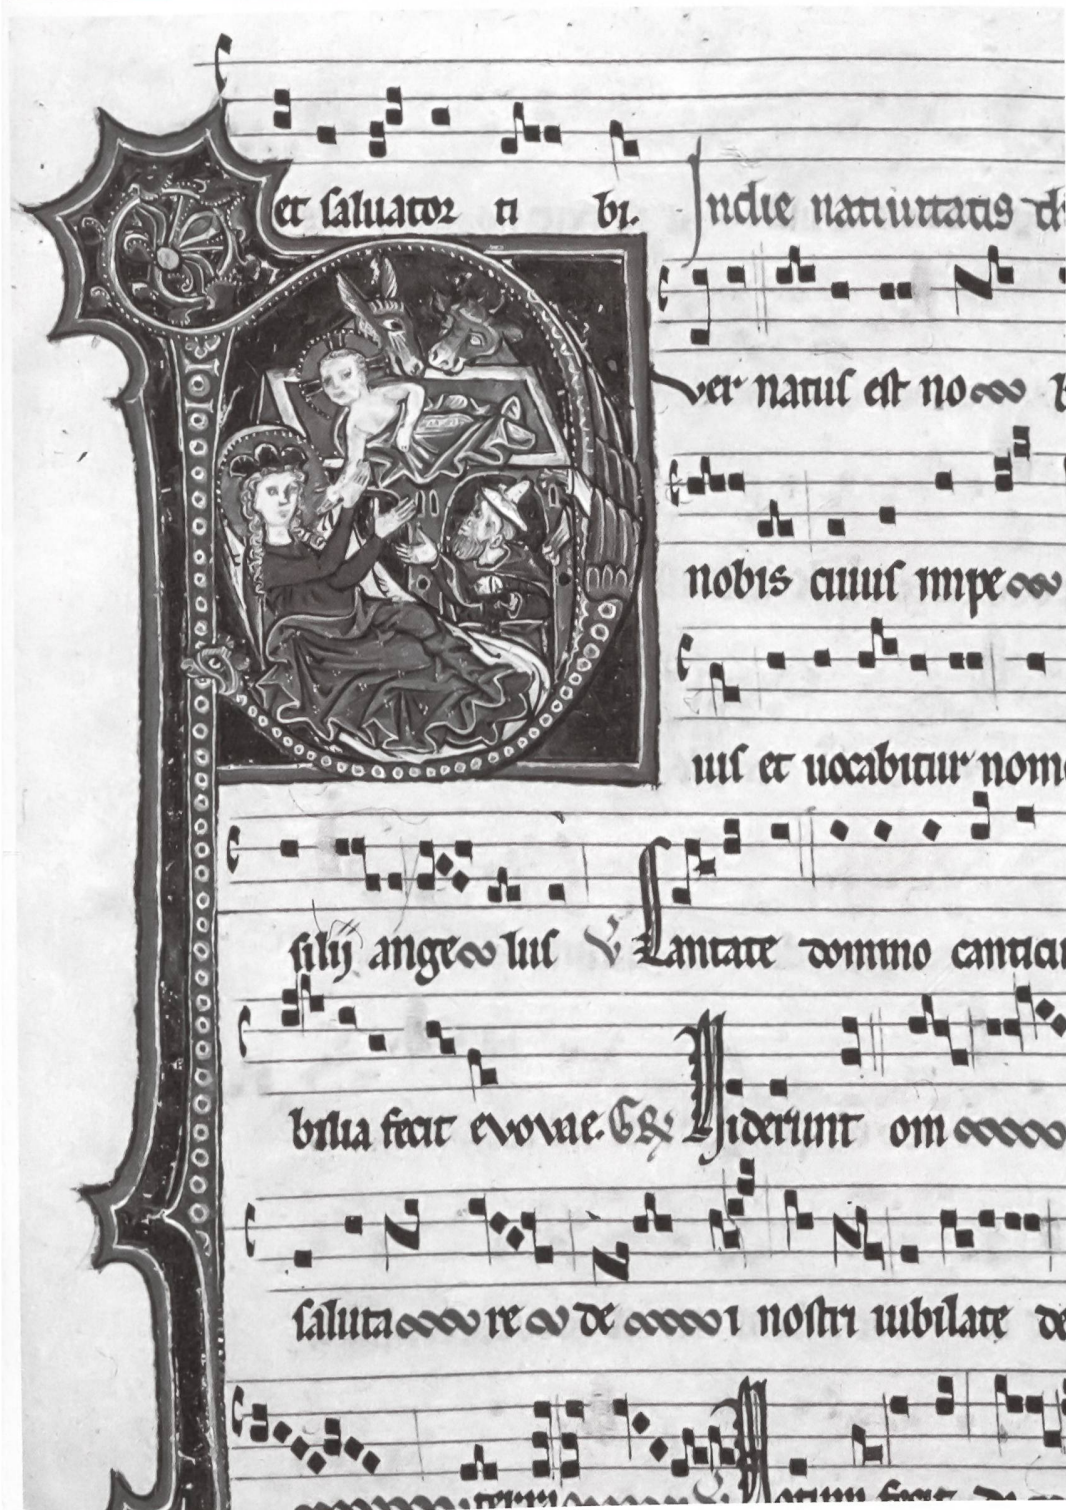 et saluator ti bi. Indie natiuitatis
uer natus est no
nobis cuius impe
uis et uocabitur nom
filij angelus V Cantate domino canticu
bilia fecit evovae. Gr Viderunt om
saluta re de i nostri iubilate de
terra V Notum fecit do